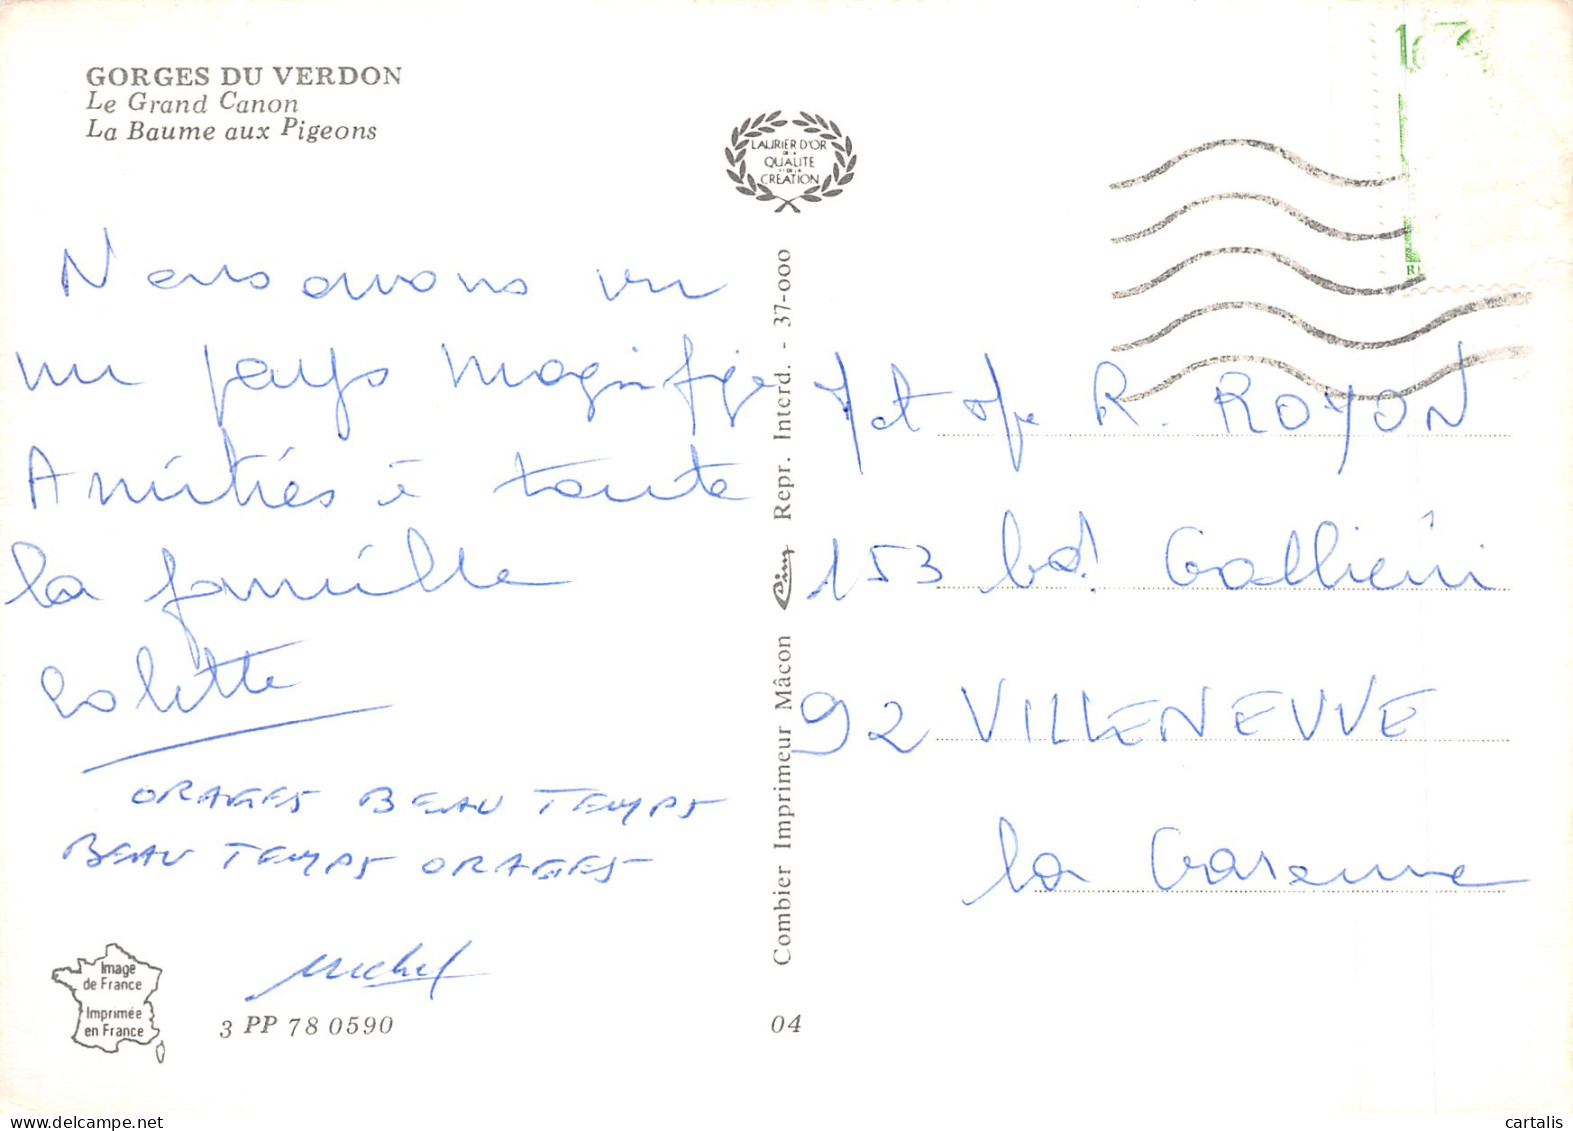 GORGES DU VERDON
Le Grand Canon
La Baume aux Pigeons
LAURIER D'OR
DE LA
QUALITE
ET DE LA
CREATION
Nous avons vu
un pays magnifique
Amitiés à toute
la famille
Colette
ORAGES BEAU TEMPS
BEAU TEMPS ORAGES
Michel
Image
de France
Imprimée
en France
3 PP 78 0590
Combier Imprimeur Mâcon Cim Repr. Interd. - 37-000
04
R. ROYON
153 bd Gallieni
92 VILLENEUVE
la Garenne
cartalis